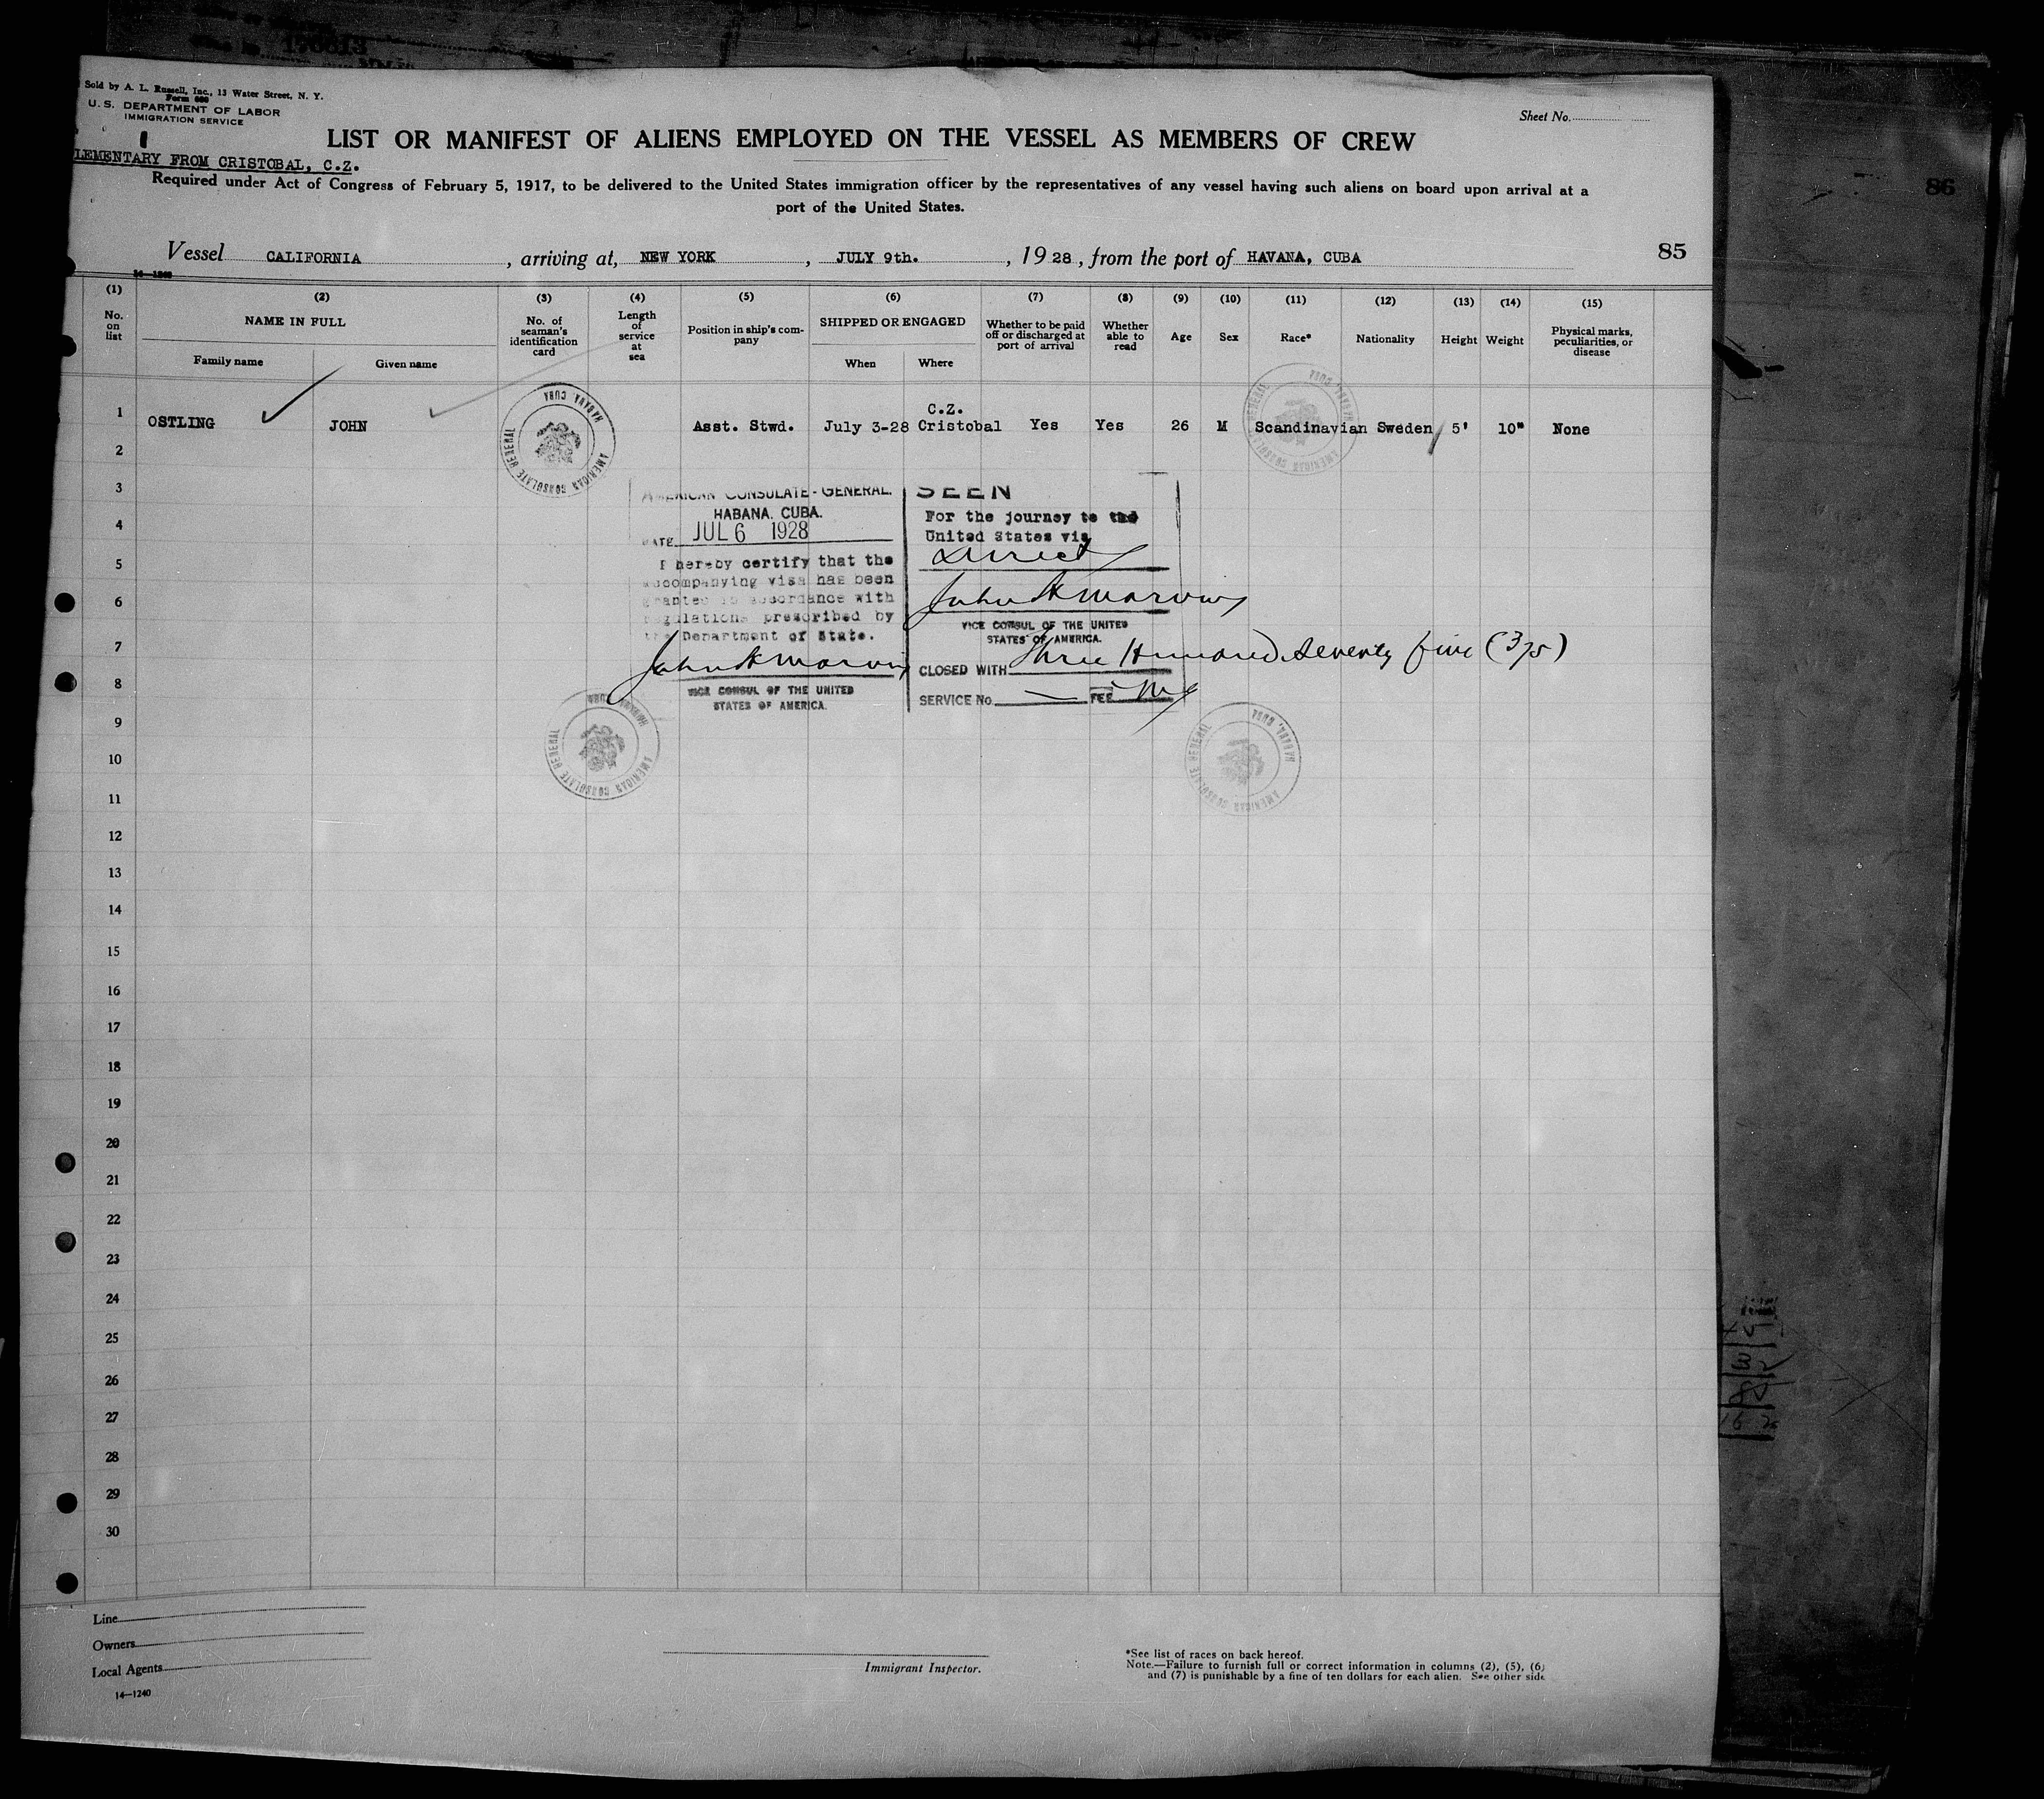 170813
Sold by A. L. Russell, Inc., 13 Water Street, N. Y.
Form 680
U. S. DEPARTMENT OF LABOR
IMMIGRATION SERVICE
Sheet No.
LIST OR MANIFEST OF ALIENS EMPLOYED ON THE VESSEL AS MEMBERS OF CREW
LEMENTARY FROM CRISTOBAL, C.Z.
Required under Act of Congress of February 5, 1917, to be delivered to the United States immigration officer by the representatives of any vessel having such aliens on board upon arrival at a
port of the United States.
86
Vessel CALIFORNIA , arriving at, NEW YORK , JULY 9th. , 19 28 , from the port of HAVANA, CUBA
85
14—1240
(1) (2) (3) (4) (5) (6) (7) (8) (9) (10) (11) (12) (13) (14) (15)
No. on list
NAME IN FULL
Family name Given name
No. of seaman's identification card
Length of service at sea
Position in ship's com-
pany
SHIPPED OR ENGAGED
When Where
Whether to be paid off or discharged at port of arrival
Whether able to read
Age Sex Race* Nationality Height Weight
Physical marks, peculiarities, or disease
1 OSTLING JOHN Asst. Stwd. July 3-28 C.Z. Cristobal Yes Yes 26 M Scandinavian Sweden 5' 10" None
AMERICAN CONSULATE GENERAL HABANA, CUBA
AMERICAN CONSULATE GENERAL HABANA, CUBA
2
3
4
5
6
7
8
9
10
11
12
13
14
15
16
17
18
19
20
21
22
23
24
25
26
27
28
29
30
AMERICAN CONSULATE - GENERAL.
HABANA. CUBA.
DATE JUL 6 1928
I hereby certify that the
accompanying visa has been
granted in accordance with
regulations prescribed by
the Department of State.
VICE CONSUL OF THE UNITED
STATES OF AMERICA.
SEEN
For the journey to the
United States via
Direct
VICE CONSUL OF THE UNITED
STATES OF AMERICA.
CLOSED WITH Three Hundred Seventy five (375)
SERVICE No. FEE
AMERICAN CONSULATE GENERAL HABANA, CUBA
AMERICAN CONSULATE GENERAL HABANA, CUBA
Line
Owners
Local Agents
14—1240
Immigrant Inspector.
*See list of races on back hereof.
Note.—Failure to furnish full or correct information in columns (2), (5), (6)
and (7) is punishable by a fine of ten dollars for each alien. See other side